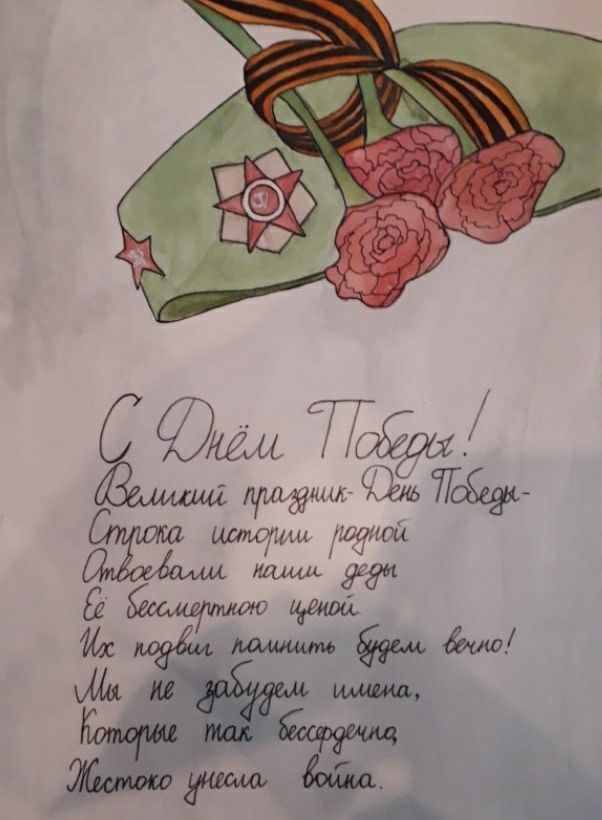 С Днём Победы!
Великий праздник- День Победы-
Строка истории родной
Отвоевали наши деды
Её бессмертною ценой.
Их подвиг помнить будем вечно!
Мы не забудем имена,
Которые так бессердечно,
Жестоко унесла война.